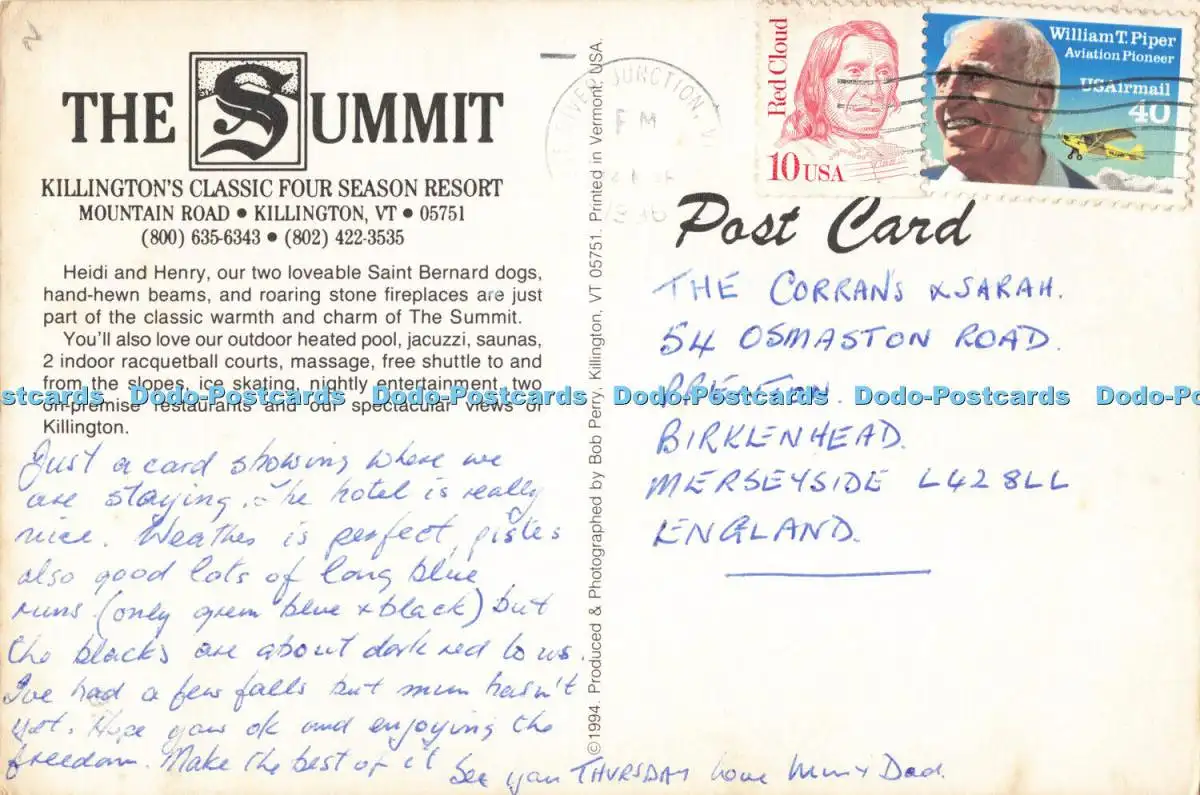 THE SUMMIT
KILLINGTON'S CLASSIC FOUR SEASON RESORT
MOUNTAIN ROAD • KILLINGTON, VT • 05751
(800) 635-6343 • (802) 422-3535
Heidi and Henry, our two loveable Saint Bernard dogs,
hand-hewn beams, and roaring stone fireplaces are just
part of the classic warmth and charm of The Summit.
You'll also love our outdoor heated pool, jacuzzi, saunas,
2 indoor racquetball courts, massage, free shuttle to and
from the slopes, ice skating, nightly entertainment, two
on-premise restaurants and our spectacular views of
Killington.
Just a card showing where we
are staying. The hotel is really
nice. Weather is perfect, pistes
also good lots of long blue
runs (only green blue & black) but
the blacks are about dark red to us.
I've had a few falls but mum hasn't
yet. Hope your ok and enjoying the
freedom. Make the best of it
See you THURSDAY love Mum & Dad.
©1994. Produced & Photographed by Bob Perry, Killington, VT 05751. Printed in Vermont, USA.
RIVER JUNCTION, V
PM
Red Cloud
10 USA
William T. Piper
Aviation Pioneer
USAirmail
40
Post Card
THE CORRANS & SARAH.
54 OSMASTON ROAD.
PRENTON.
BIRKLENHEAD.
MERSEYSIDE L42 8LL
ENGLAND.
Dodo-Postcards Dodo-Postcards Dodo-Postcards Dodo-Postcards